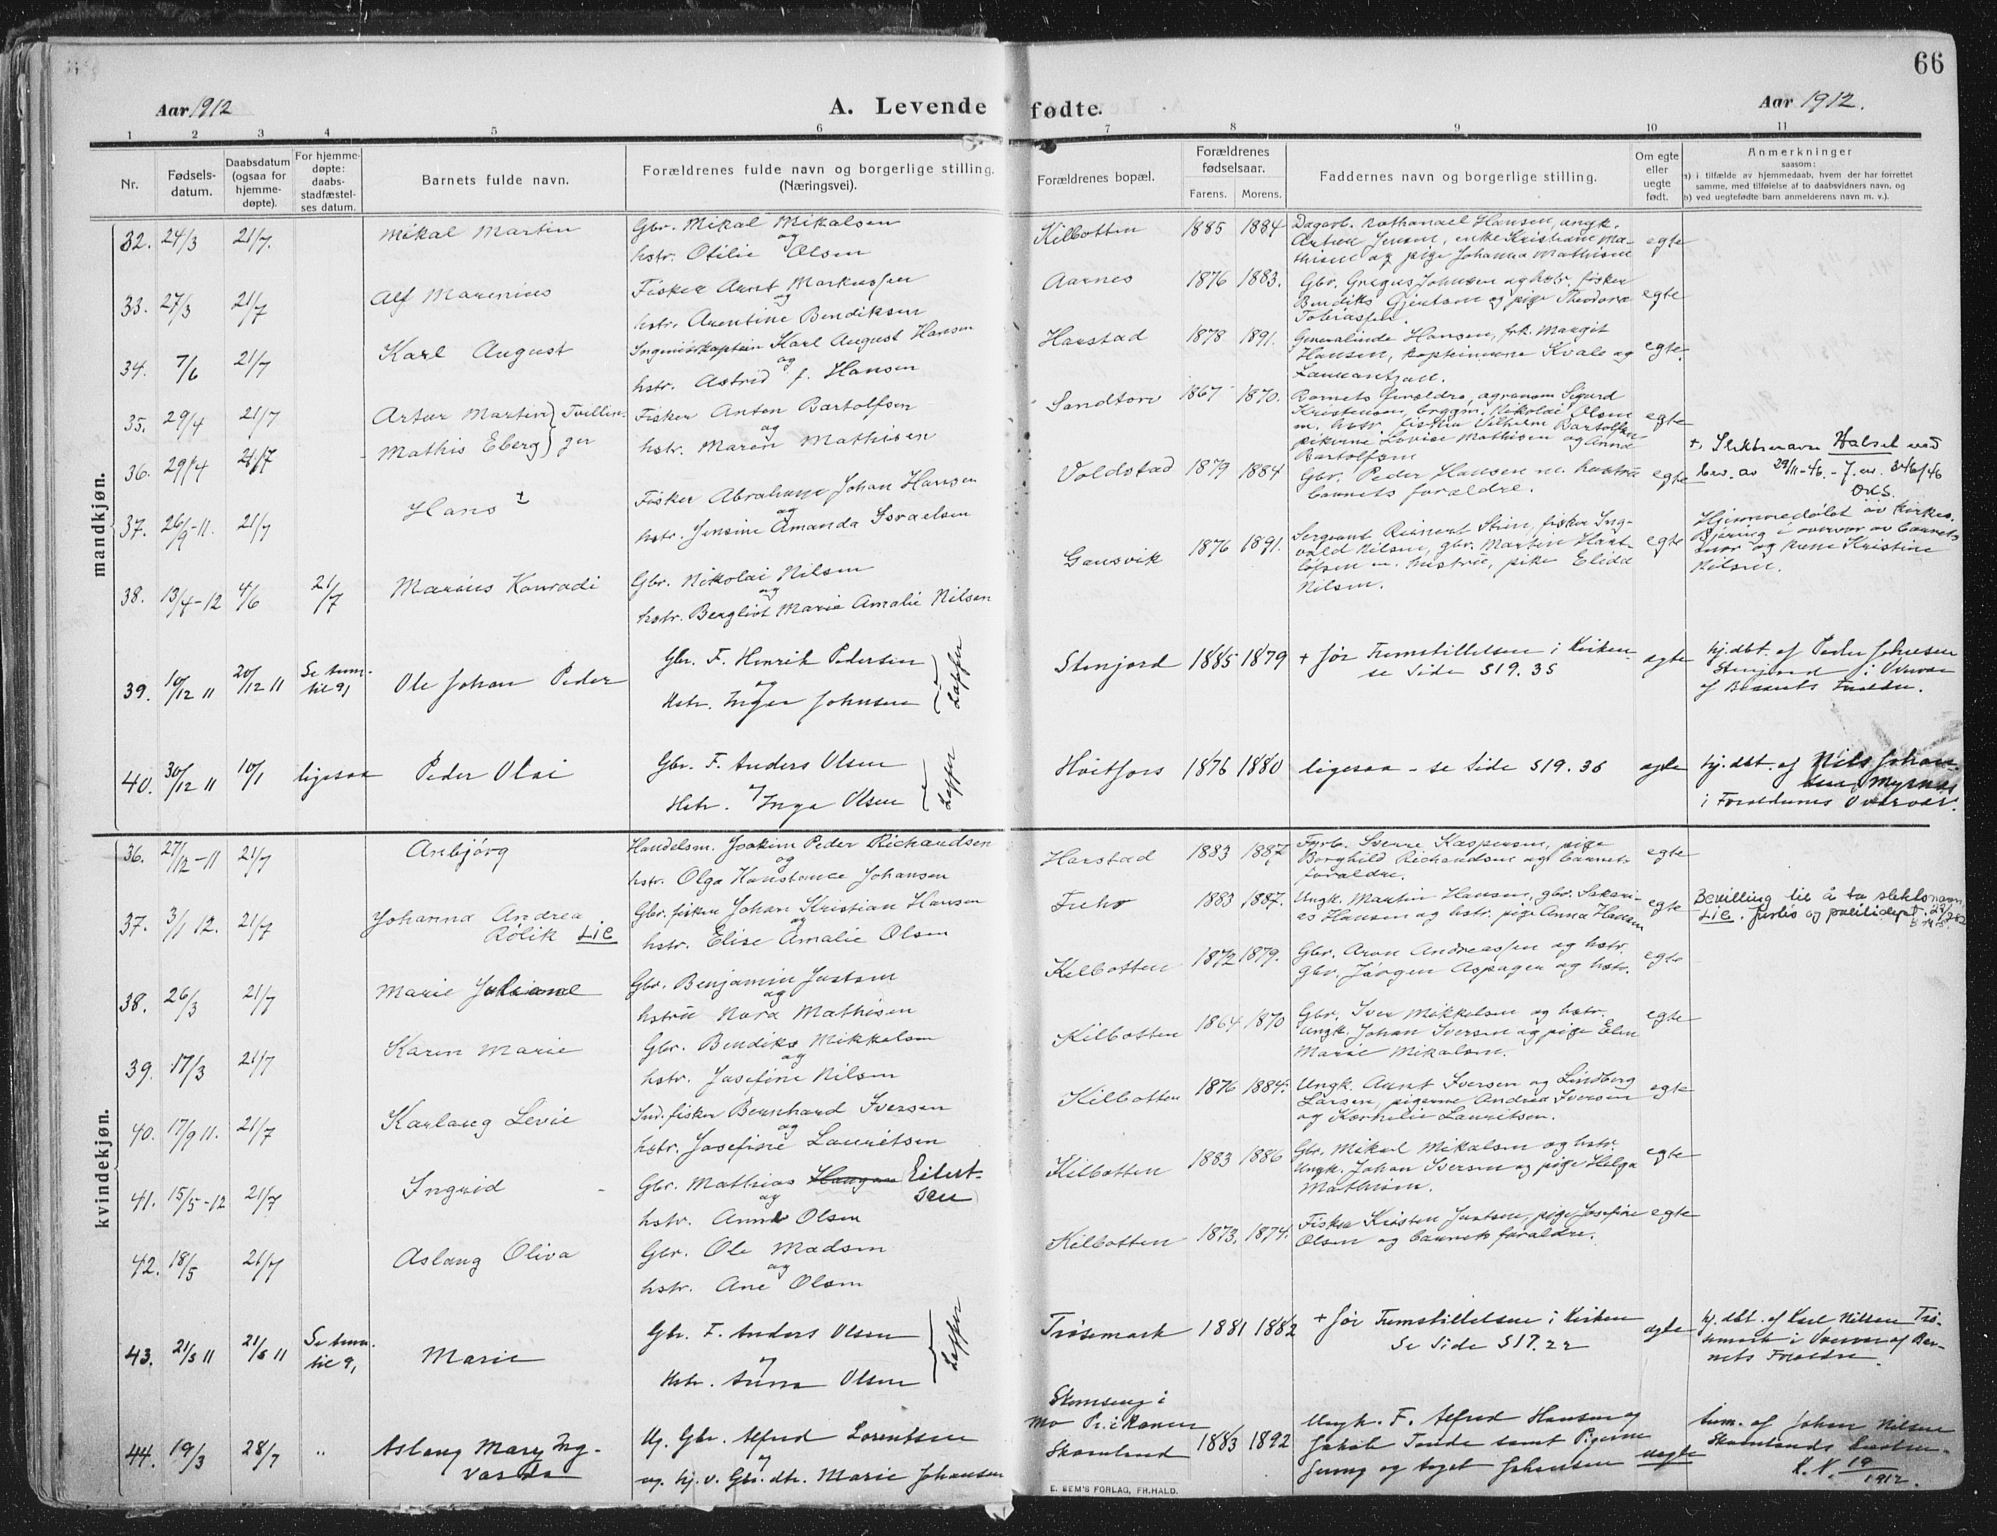 66
Aar 1912
A. Levende fødte.
Aar 1912.
1 2 3 4 5 6 7 8 9 10 11
Nr.
Fødsels-
datum.
Daabsdatum
(ogsaa for
hjemme-
døpte).
For hjemme-
døpte:
daabs-
stadfæstel-
ses datum.
Barnets fulde navn.
Forældrenes fulde navn og borgerlige stilling.
(Næringsvei).
Forældrenes bopæl.
Forældrenes
fødselsaar.
Farens. Morens.
Faddernes navn og borgerlige stilling.
Om egte
eller
uegte
født.
Anmerkninger
saasom:
a) i tilfælde av hjemmedaab, hvem der har forrettet
samme, med tilføielse af to daabsvidners navn, og
b) ved uegtefødte barn anmelderens navn m. v.).
mandkjøn.
32. 24/3 21/7. Mikal Martin
Gbr. Mikal Mikalsen
og
hstr. Otilie Olsen
Kilbotten 1885 1884
Dagarb. Nathanael Hansen, ungk.
Artur Jensen, enke Kristiane Ma-
thisen og pige Johanna Mathisen
egte
33. 27/3 21/7 Alf Marenius
Fisker Arnt Markussen
og
hstr. Arentine Bendiksen
Aarnes 1876 1883.
Gbr. Gregus Johnsen og hstr. fisker
Bendiks Gjertsen og pige Theodora
Tobiassen.
egte
34. 7/6 21/7 Karl August
Ingeniørkaptein Karl August Hansen
og
hstr. Astrid f. Hansen
Harstad 1878 1891.
Hansen, frk. Margit
Hansen, kapteinerne Kvale og
egte.
35. 29/4 21/7 Artur Martin } Tvillin-
36. 29/4 21/7 Mathis Eberg } ger
Fisker Anton Bartolfsen
og
hstr. Maren Mathisen
Sandtorv 1867 1870.
Barnets forældre, agronom Sigurd
Kristensen, byggm. Nikolai Olsen
m. hstr. fiskér Vilhelm Bartolfsen
pikerne Lovise Mathisen og Anna
Bartolfsen
egte
37. 26/9-11. 21/7 Hans +
Fisker Abraham Johan Hansen
og
hstr. Jensine Amanda Israelsen
Voldstad 1879 1884
Gbr. Peder Hansen m. hustru
barnets forældre.
egte
+. Slektsnavn Halset ved
bev. av 29/11-46. - J.nr. 346/46
OKS.
38. 13/4-12 4/6 21/7 Marius Konradi
Gbr. Nikolai Nilsen
og
hstr. Bergliot Marie Amalie Nilsen
Gansvik 1876 1891.
Sergeant Reinert Stein, fisker Ing-
vald Nilsen, gbr. Martin Hart-
lofsen m. hustru, pike Elida
Nilsen.
egte
Hjemmedøbt av kirkes.
Bjøring i overvær av barnets
mor og kone Kristine
Nilsen.
39. 10/12 11 20/12 11 Se anm.
til 9, Ole Johan Peder
Gbr. F. Henrik Pedersen
og
Hstr. Inger Johnsen
Lapper
Stenjord 1885 1879
+ før Fremstillelsen i Kirken
se Side 519. 35
egte
hj. dbt. af Peder Johnsen
Stenjord i Overvær
af Barnets Forældre.
40. 30/12 11 10/1 ligesaa Peder Olai
Gbr. F. Anders Olsen
og
Hstr. Inga Olsen
Lapper
Hvitfors 1876 1880
ligesaa - se Side 519. 36
egte
hj. dbt. af Nils Johan-
sen Myrnes
i Forældrenes Overvær.
kvindekjøn.
36. 27/12-11 21/7 Anbjørg
Handelsm. Joakim Peder Richardsen
og
hstr. Olga Konstance Johansen
Harstad 1883 1887
Fyrb. Sverre Kaspersen, pige
Borghild Richardsen og barnets
forældre.
egte
37. 3/1 12. 21/7 Johanna Andrea
Rølik Lie
Gbr. fisker Johan Kristian Hansen
og
hstr. Elise Amalie Olsen
1883 1887.
Ungk. Martin Hansen, gbr. Sakari-
as Hansen og hstr. pige Anna Hansen
egte
Bevilling til å ta slektsnavn
Lie. Justis og politidept.
38. 26/3 21/7 Marie Juliane
Gbr. Benjamin Justsen
og
hstru Nora Mathisen
Kilbotten 1872 1879.
Gbr. Aron Andreassen og hstr.
gbr. Jørgen Aspagen og hstr.
egte
39. 17/3 21/7 Karen Marie
Gbr. Bendiks Mikkelsen
og
hstr. Josefine Nilsen
Kilbotten 1864 1870
Gbr. Iver Mikkelsen og hstr.
ungk. Johan Iversen og pige Elen
Marie Mikalsen.
egte
40. 17/9 11. 21/7 Karlaug Levie
Ind. fisker Bernhard Iversen
og
hstr. Josefine Lauritsen
Kilbotten 1876 1884.
Ungk. Arnt Iversen og Lindberg
Larsen, pigerne Andrea Iversen
og Kornelie Lauritsen.
egte
41. 15/5-12 21/7 Ingrid
Gbr. Mathias Haugen Eilert-
sen
og
hstr. Anna Olsen
Kilbotten 1883 1886
Gbr. Mikal Mikalsen og hstr.
Ungk. Johan Iversen og pige Helga
Mathisen.
egte
42. 18/5 21/7 Aslaug Oliva
Gbr. Ole Madsen
og
hstr. Ane Olsen
Kilbotten 1873, 1874.
Fisker Kristen Justsen, pige Josefine
Olsen og barnets forældre.
egte
43. 21/5 11 21/5 11 Se anm.
til 9, Marie
Gbr. F. Anders Olsen
og
Hstr. Anna Olsen
Lapper
Trøsemark 1881 1882
+ før Fremstillelsen i Kirken
Se Side 517. 22
egte
hj. dbt. af Karl Nilsen Trø-
semark i Overvær af Bar-
nets Forældre.
44. 19/3 28/7 " Aslaug Mary Ing-
varda
Ug. Gbr. Alfred Lorentsen
og
ug. hj. v. Gbr. dtr. Marie Johansen
i
Mo Pr. i Ranen
Skomland 1883 1892
Ungk. F. Alfred Hansen og
Jakob Tande samt Pigerne
Jenny og Aagot Johansen
uegte
anm. af Johan Nilsen
Skamlands
K. N. 19/1912.
E. SEM'S FORLAG, FR.HALD.